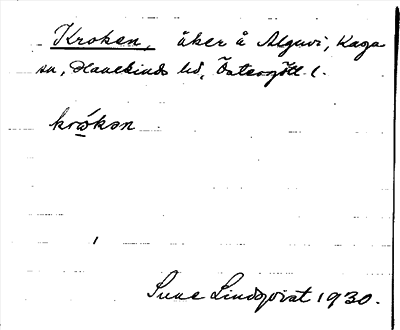 Kroken, åker å Alguvi, Kaga
sn, Hanekinds hd, Östergötl. l.
krókən
Sune Lindqvist 1930.